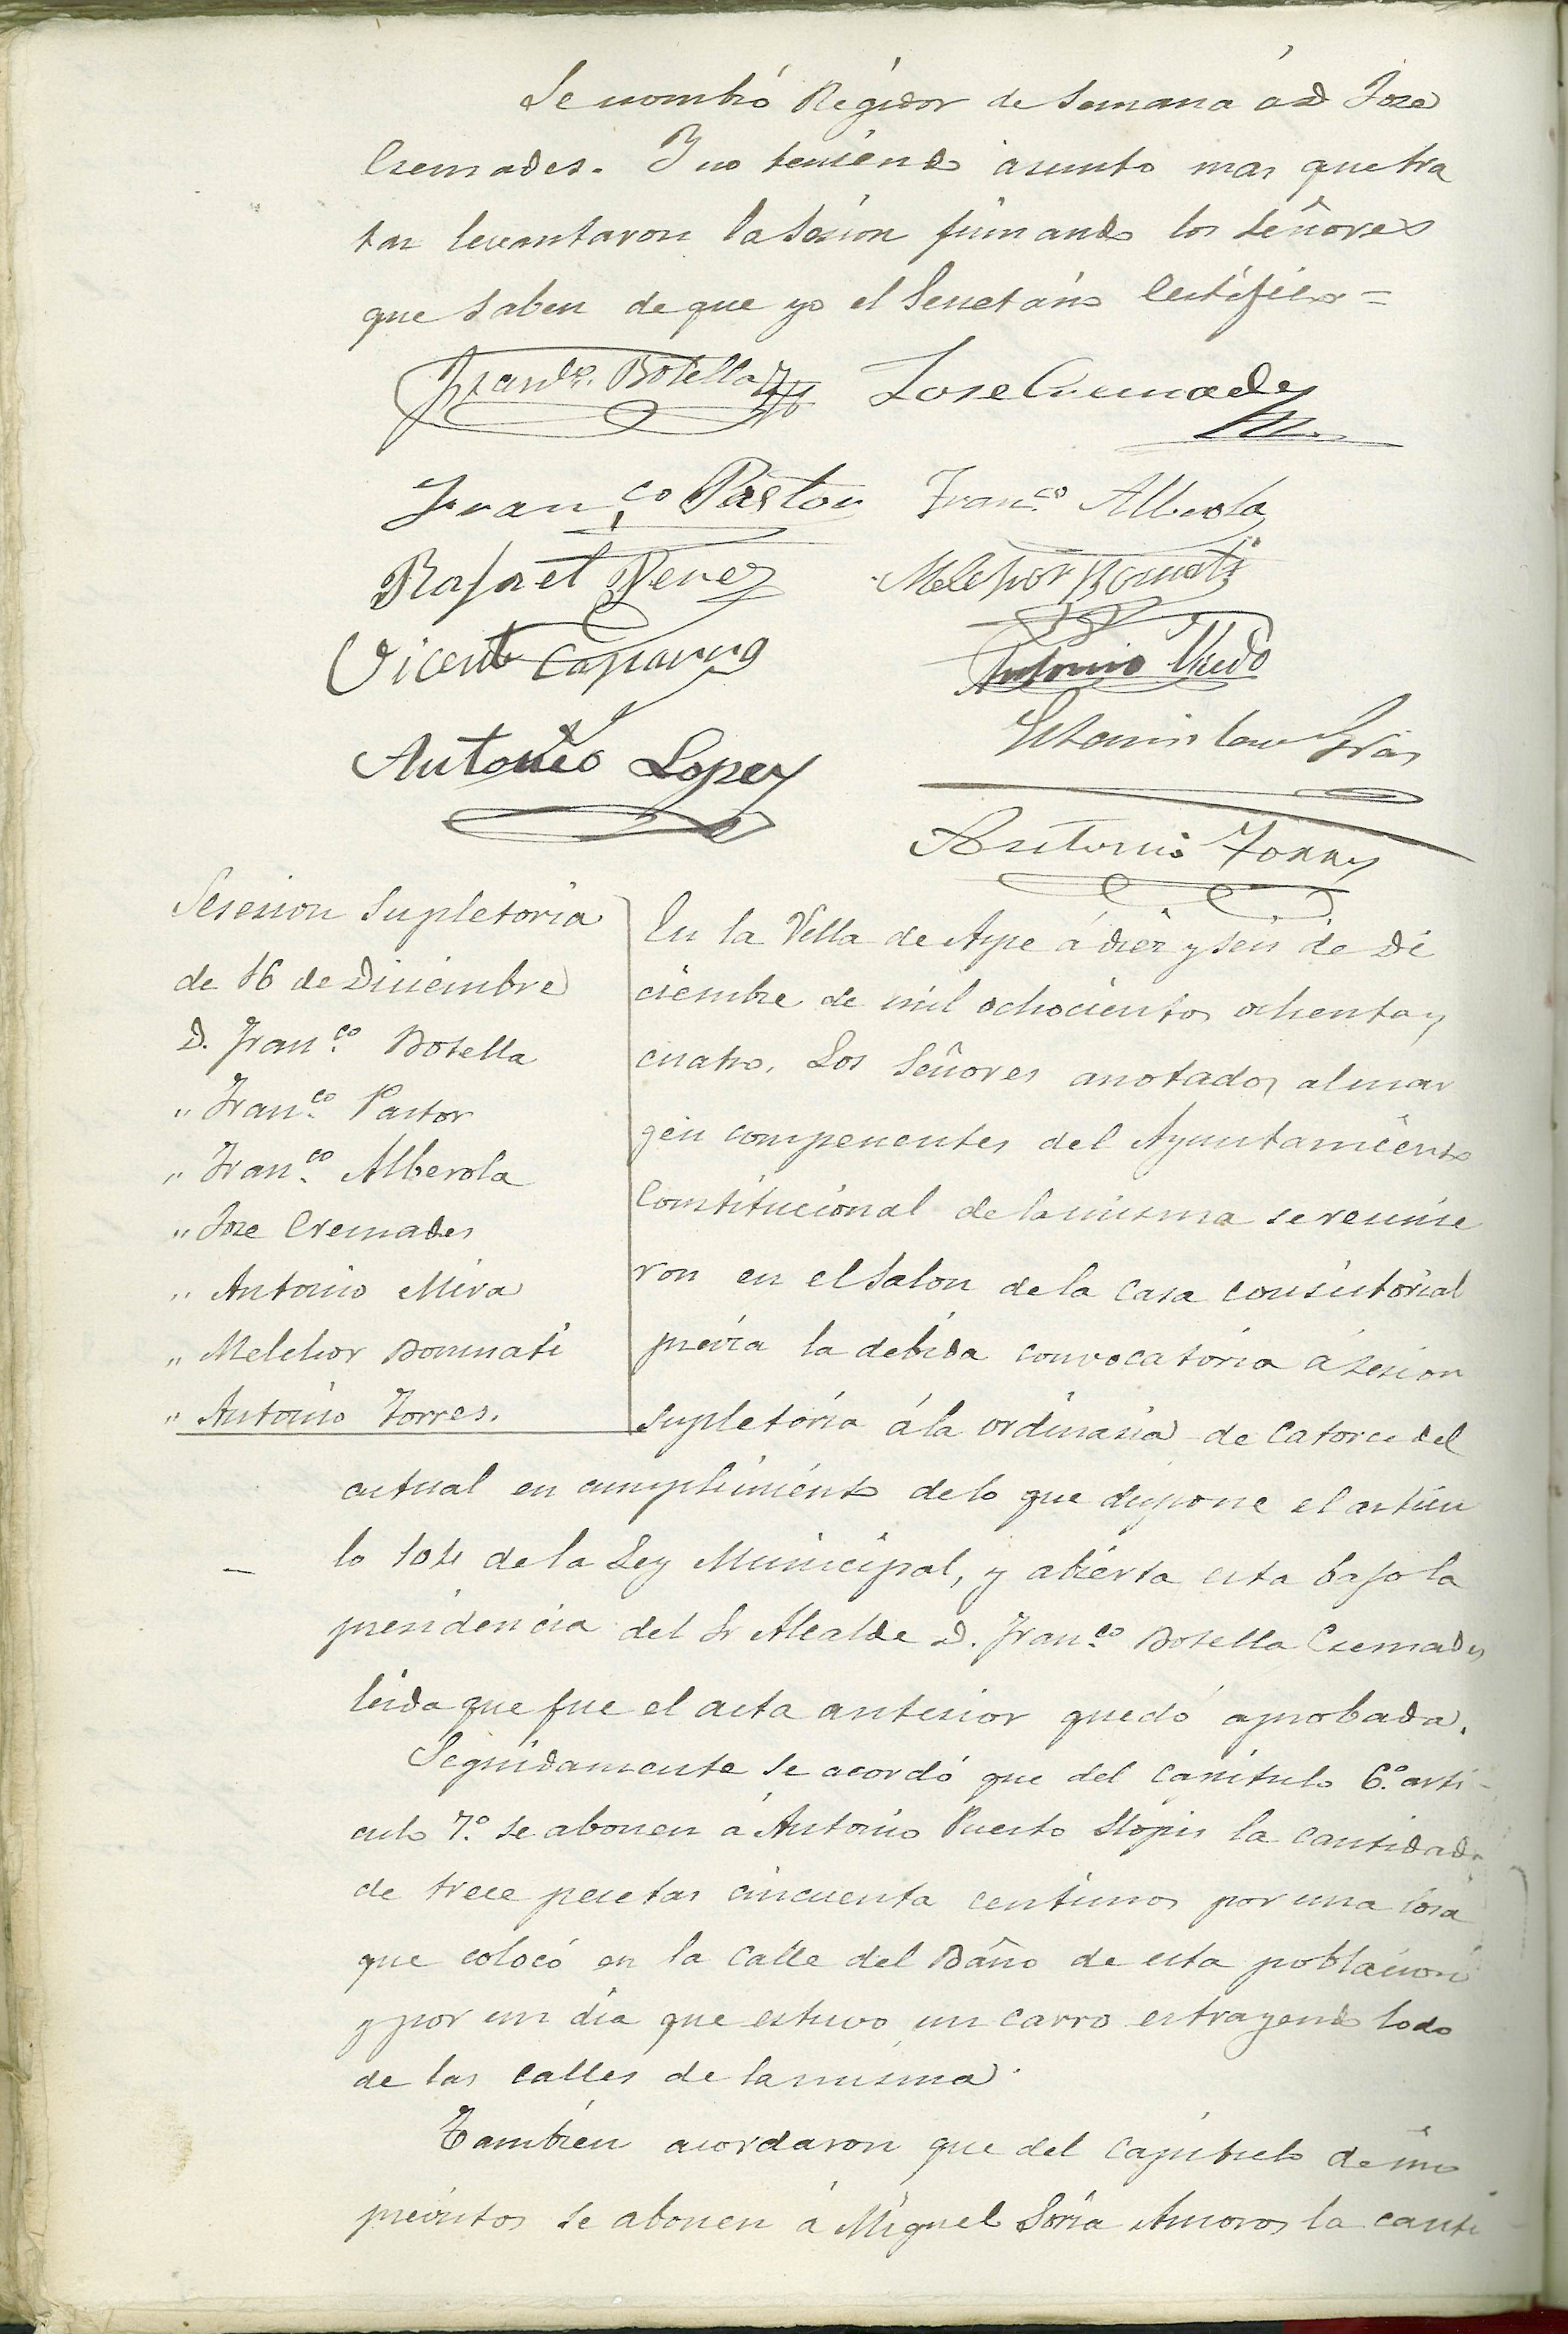 Se nombró Regidor de semana á D Jose
Cremades. Y no teniendo asunto mas que tra
tar levantaron la Sesion firmando los Señores
que saben de que yo el Secretario Certifico =
Franco. Botella Jose Cremades
Franco Pastor Franco. Alberola
Rafael Perez Melchor Bonmati
Vicente Caparros Antonio
Antonio Lopez Estanislau
Antonio Torres
Sesesion Supletoria
de 16 de Diciembre
D. Franco. Botella
" Franco. Pastor
" Franco. Alberola
" Jose Cremades
" Antonio Mira
" Melchor Bonmati
" Antonio Torres.
En la Villa de Aspe á diez y seis de Di
ciembre de mil ochocientos ochenta y
cuatro. Los Señores anotados al mar
gen componentes del Ayuntamiento
Constitucional de la misma se reunie
ron en el Salon de la Casa consistorial
previa la debida convocatoria á sesion
supletoria á la ordinaria de Catorce del
actual en cumplimiento de lo que dispone el articu
lo 104 de la Ley Municipal, y abierta esta bajo la
presidencia del Sr Alcalde D. Franco. Botella Cremades
leida que fue el acta anterior quedó aprobada.
Seguidamente se acordó que del Capitulo 6.º arti-
culo 7.º se abonen á Antonio Puerto Llopis la cantidad
de trece pesetas cincuenta centimos por una losa
que colocó en la Calle del Baño de esta poblacion
y por un dia que estuvo un carro estrayendo lodo
de las calles de la misma.
Tambien acordaron que del Capitulo de im
previstos se abonen á Miguel Soria Amoros la canti